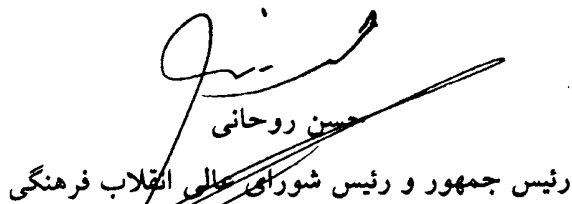 حسن روحانی
رئیس جمهور و رئیس شورای عالی انقلاب فرهنگی